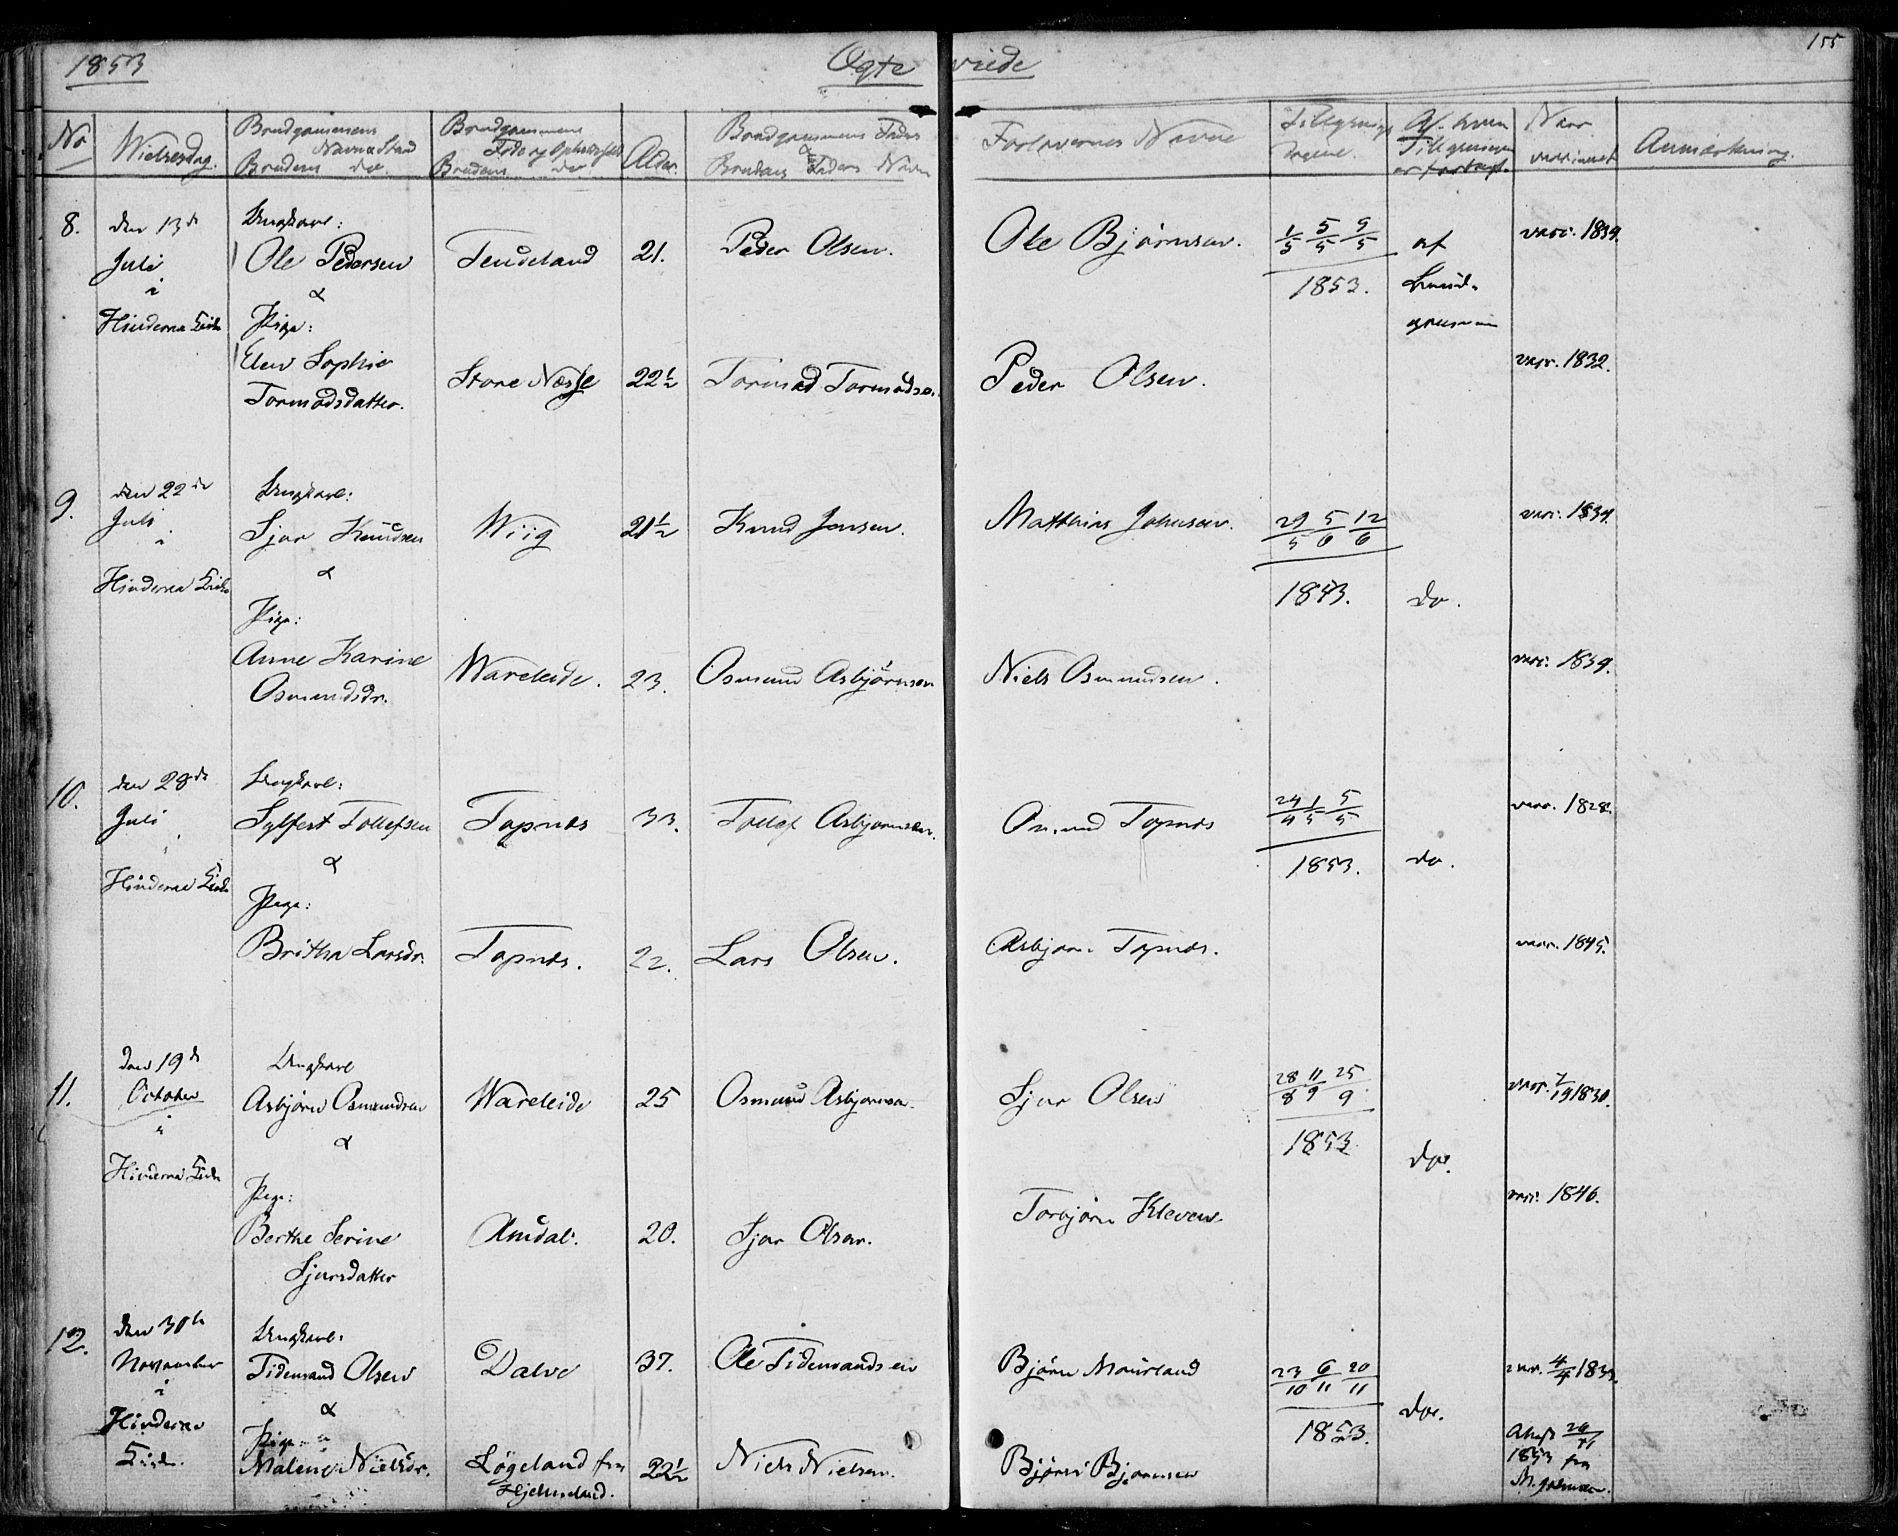 1853 Ægte viede 155
No Vielsesdag. Brudgommens Navn & Stand Brudens do. Brudgommens Føde og Opholdssted Brudens do Alder. Brudgommens Faders & Brudens Faders Navn Forlovernes Navne Tillysnings Dagene. Af hvem Tillysningen er forlangt. Naar vaccineret Anmærkning.
8. den 13de Ungkarl:
Juli Ole Pedersen Tendeland 21. Peder Olsen. Ole Bjørnsen. 1/5 5/5 9/5 af vacc. 1839.
i & 1853. Brud-
Hinderaa Kirke Pige: gommen
Elen Sophie Store Næsse 22½ Tormod Tormodsen. Peder Olsen. vacc. 1832.
Tormodsdatter.
9. den 22de Ungkarl:
Juli Sjur Knudsen Wiig 21½ Knud Jensen. Matthias Johnsen. 29/5 5/6 12/6 vacc. 1839.
i &
Hinderaa Kirke 1853. do.
Pige:
Anne Karine Wareleide. 23. Osmund Asbjørnsen Niels Osmundsen. vacc. 1839.
Osmundsdr.
10. den 28de Ungkarl:
Juli Sylfest Tollefsen Tøpnæs 33. Tollef Asbjørnsen. Tøpnæs 24/4 1/5 5/5 vacc. 1828.
& 1853. do.
Hinderaa Kirke Pige:
Britha Larsdr. Tøpnæs. 22. Lars Olsen. Asbjørn Tøpnæs. vacc. 1845.
11. den 19de Ungkarl
October Asbjørn Osmundsen Wareleide 25 Osmund Asbjørnsen. Sjur Olsen 28/8 11/9 25/9 vacc. 7/9 1830.
i & 1853. do.
Hinderaa Kirke Pige:
Berthe Serine Amdal. 20. Sjur Olsen. Torbjørn Kleven. vacc. 1846.
Sjursdatter
12. den 30te Ungkarl:
November Tidemand Olsen Dalve 37. Ole Tidemandsen Bjørn Mourland 23/10 6/11 20/11 vacc. 4/4
i & 1853. do.
Hinderaa Pige
Kirke. Malene Nielsdr. Løgeland fra 22½ Niels Nielsen. Bjørn Bjørnsen Attest 1853 fra
Hjelmeland.